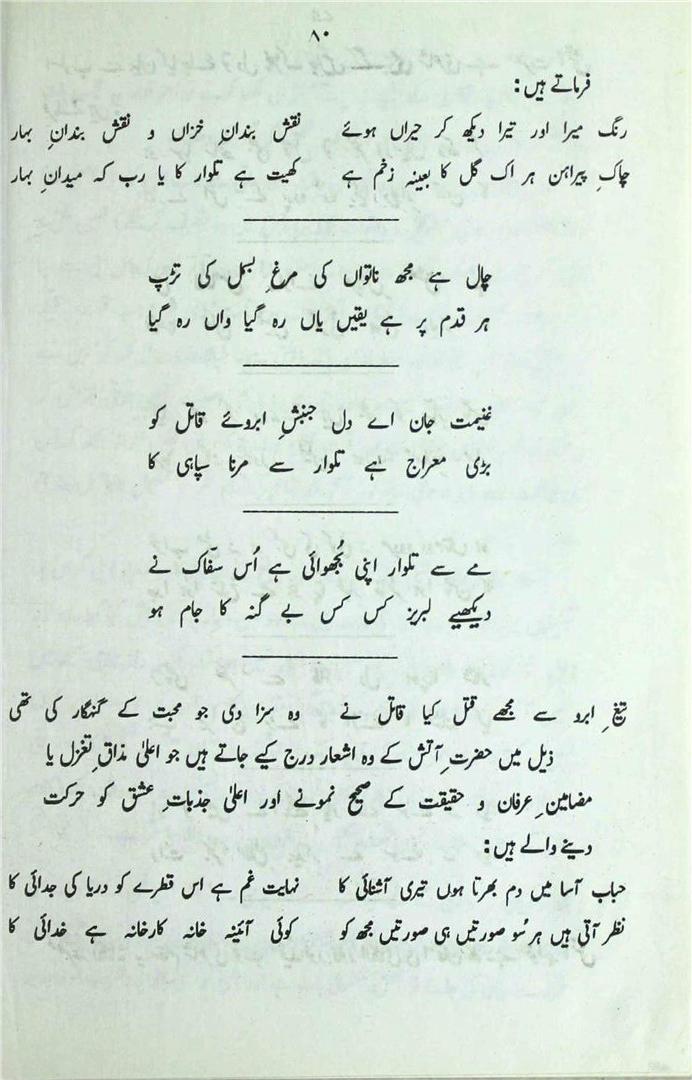 ۸۰
فرماتے ہیں:
رنگ میرا اور تیرا دیکھ کر حیراں ہوئے نقش بندانِ خزاں و نقش بندانِ بہار
چاکِ پیراہن ہر اک گل کا بعینہٖ زخم ہے کھیت ہے تلوار کا یا رب کہ میدانِ بہار
چال ہے مجھ ناتواں کی مرغِ بسمل کی تڑپ
ہر قدم پر ہے یقیں یاں رہ گیا واں رہ گیا
غنیمت جان اے دل جنبشِ ابروئے قاتل کو
بڑی معراج ہے تلوار سے مرنا سپاہی کا
مے سے تلوار اپنی بُجھوائی ہے اُس سفّاک نے
دیکھیے لبریز کس کس بے گنہ کا جام ہو
تیغِ ابرو سے مجھے قتل کیا قاتل نے وہ سزا دی جو محبت کے گنہگار کی تھی
ذیل میں حضرتِ آتش کے وہ اشعار درج کیے جاتے ہیں جو اعلیٰ مذاقِ تغزل یا
مضامینِ عرفان و حقیقت کے صحیح نمونے اور اعلیٰ جذباتِ عشق کو حرکت
دینے والے ہیں:
حباب آسا میں دم بھرتا ہوں تیری آشنائی کا نہایت غم ہے اس قطرے کو دریا کی جدائی کا
نظر آتی ہیں ہر سُو صورتیں ہی صورتیں مجھ کو کوئی آئینہ خانہ کارخانہ ہے خدائی کا